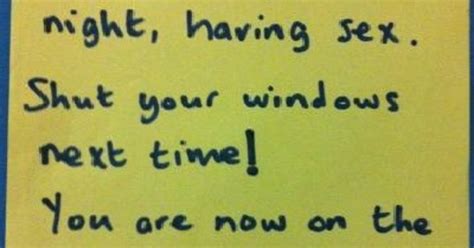 night, having sex.
Shut your windows
next time!
You are now on the